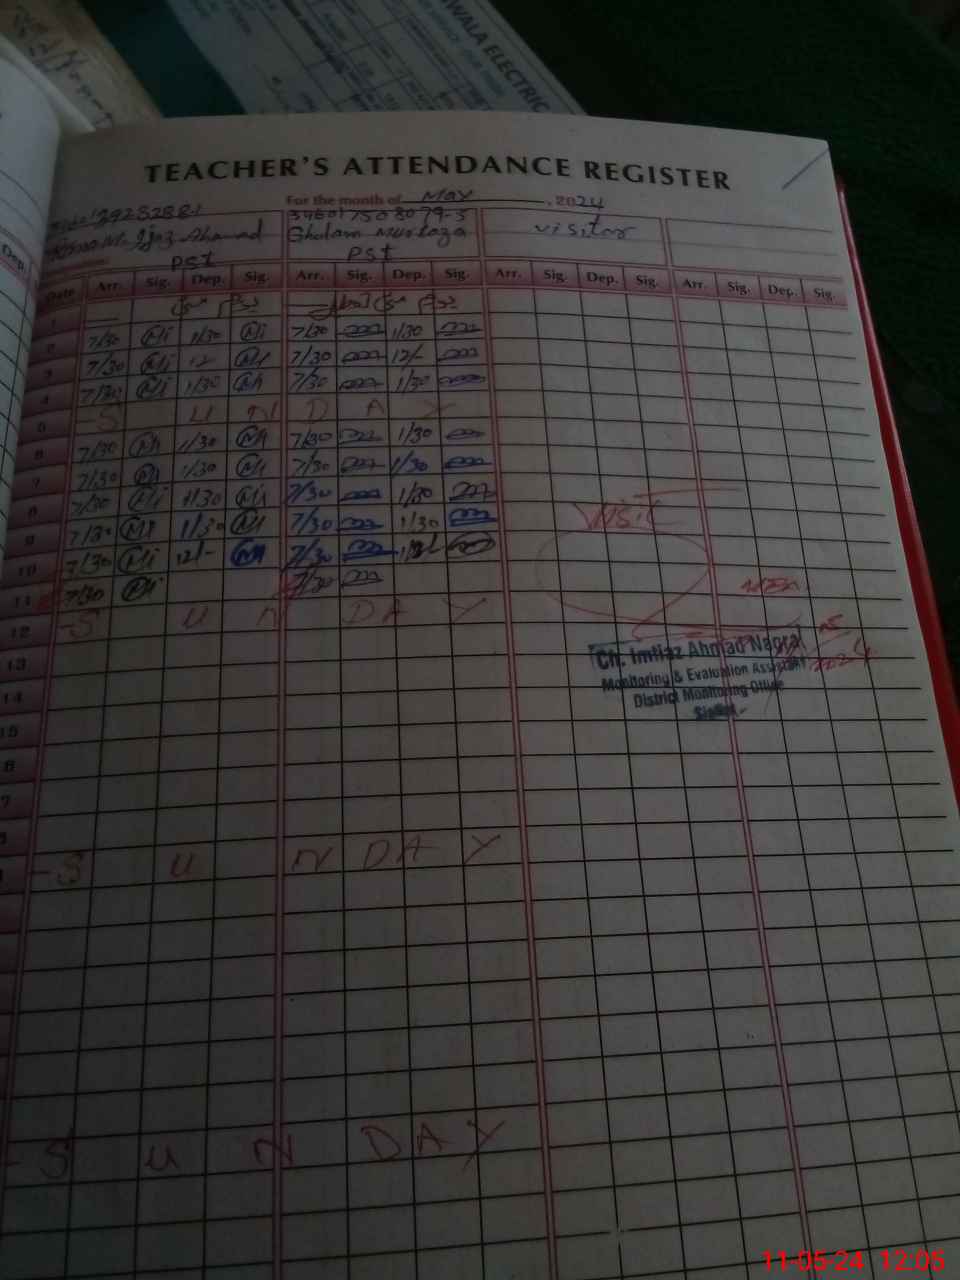 WALA ELECTRIC
TEACHER'S ATTENDANCE REGISTER
For the month of May, 2024
346017508079-5
Ijaz Ahmad Gholam Murtaza visitor
PST PST
Dep.
Date Arr. Sig. Dep. Sig. Arr. Sig. Dep. Sig. Arr. Sig. Dep. Sig. Arr. Sig. Dep. Sig.
1 یوم
2 7/30 1/30 7/30 1/30
3 7/30 12/- 7/30 12/-
4 7/30 1/30 7/30 1/30
5 S U N D A Y
6 7/30 1/30 7/30 1/30
7 7/30 1/30 7/30 1/30
8 7/30 1/30 7/30 1/30
9 7/30 1/30 7/30 1/30
Visit
10 7/30 12/- 7/30
11 7/30 7/30
12 S U N D A Y
13
Ch. Imtiaz Ahmad Nagra
Monitoring & Evaluation Assistant
2024
14
District Monitoring Office
Sialkot
15
S U N D A Y
S U N D A Y
11-05-24 12:05